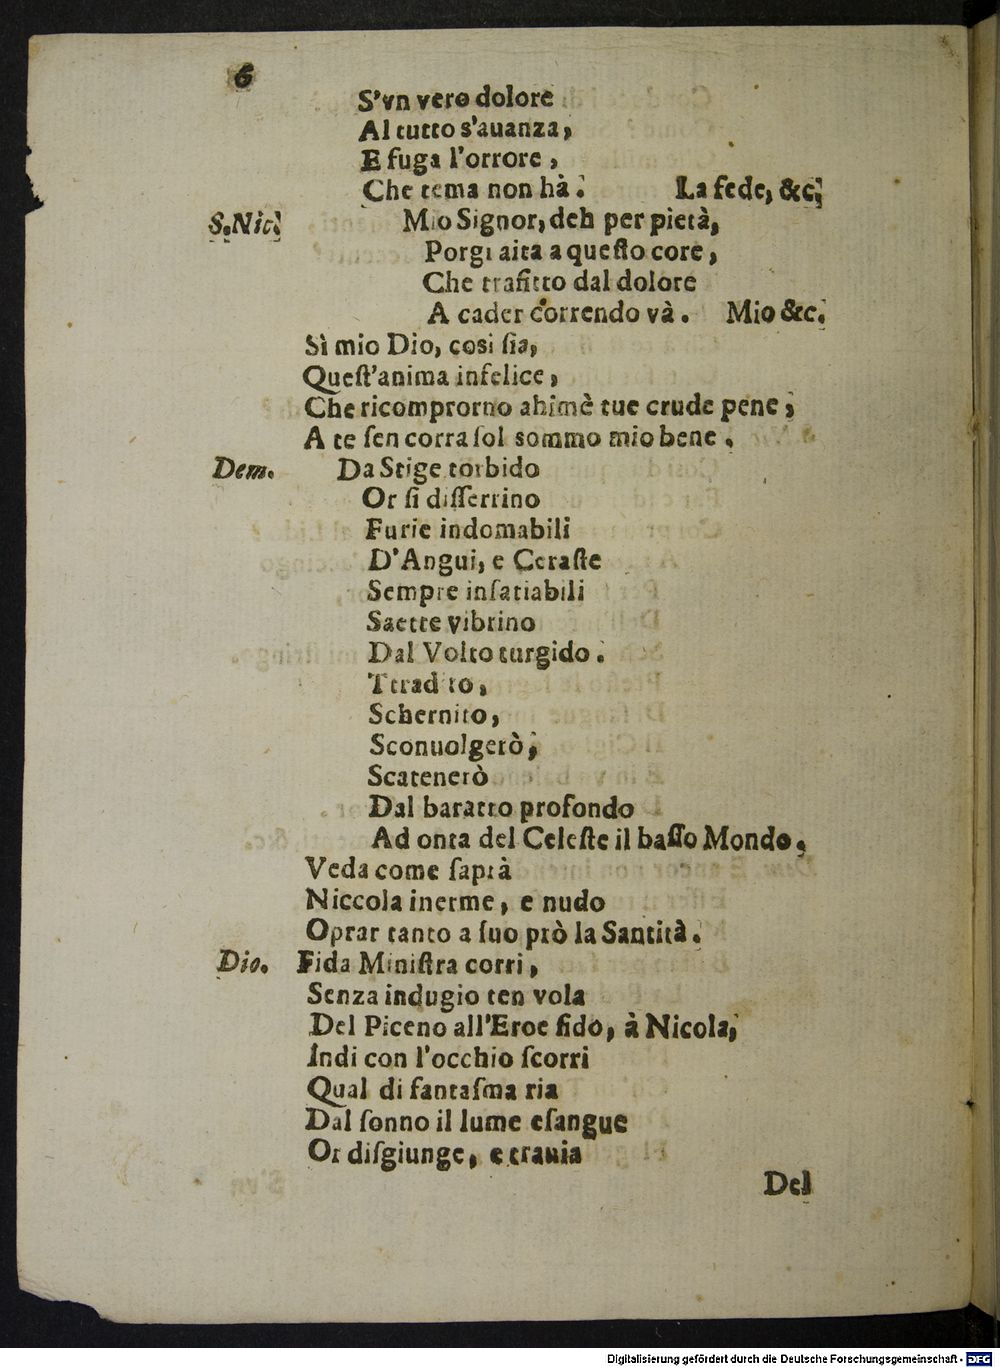 6
S'vn vero dolore
Al tutto s'auanza,
E fuga l'orrore,
Che tema non hà. La fede, &c.
S.Nic. Mio Signor, deh per pietà,
Porgi aita a queſto core,
Che trafitto dal dolore
A cader correndo và. Mio &c.
Sì mio Dio, cosi ſia,
Queſt'anima infelice,
Che ricomprorno ahimè tue crude pene,
A te ſen corra ſol sommo mio bene.
Dem. Da Stige torbido
Or ſi diſſerrino
Furie indomabili
D'Angui, e Ceraſte
Sempre inſatiabili
Saette vibrino
Dal Volto turgido.
Tradito,
Schernito,
Sconuolgerò,
Scatenerò
Dal baratro profondo
Ad onta del Celeſte il baſſo Mondo.
Veda come ſaprà
Niccola inerme, e nudo
Oprar tanto a ſuo prò la Santità.
Dio. Fida Miniſtra corri,
Senza indugio ten vola
Del Piceno all'Eroe fido, à Nicola,
Indi con l'occhio ſcorri
Qual di fantaſma ria
Dal ſonno il lume eſangue
Or diſgiunge, e trauia
Del
Digitalisierung gefördert durch die Deutsche Forschungsgemeinschaft - DFG